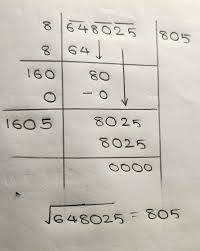 8 | 648025 | 805
8 | 64↓
160 | 80
0 | -0 ↓
1605 | 8025
8025
0000
√648025 = 805